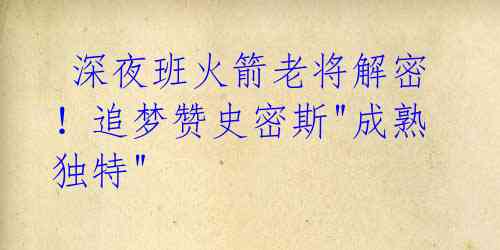 深夜班火箭老将解密
！追梦赞史密斯"成熟
独特"